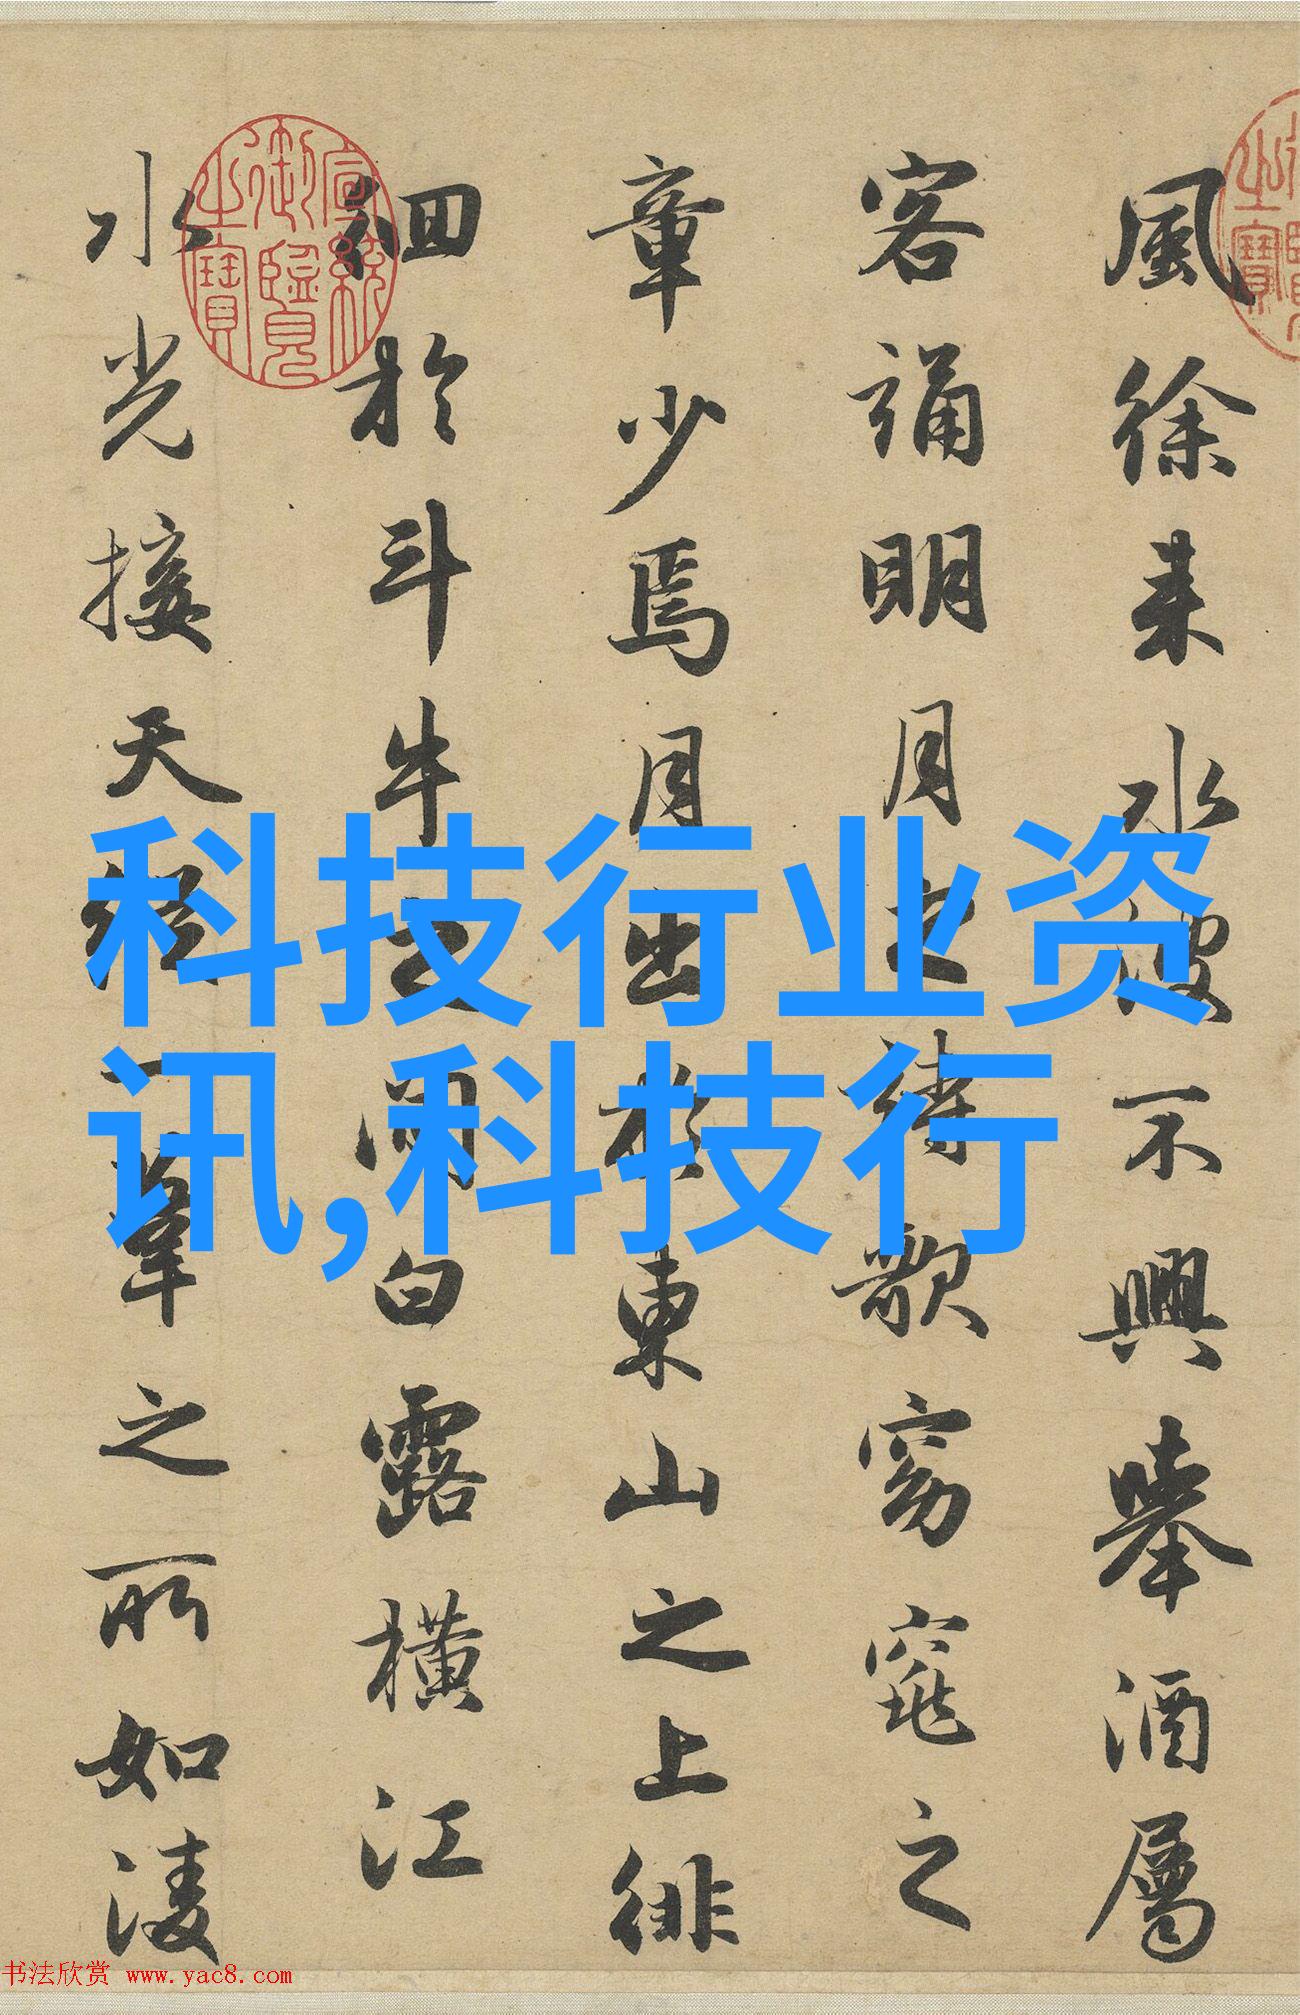 風徐来水波不興舉酒屬
客誦明月之詩歌窈窕之
章少焉月出於東山之上徘
徊於斗牛之間白露橫江
水光接天縱一葦之所如淩
宣統御覽之寶
科技行业资
讯,科技行
书法欣赏 www.yac8.com